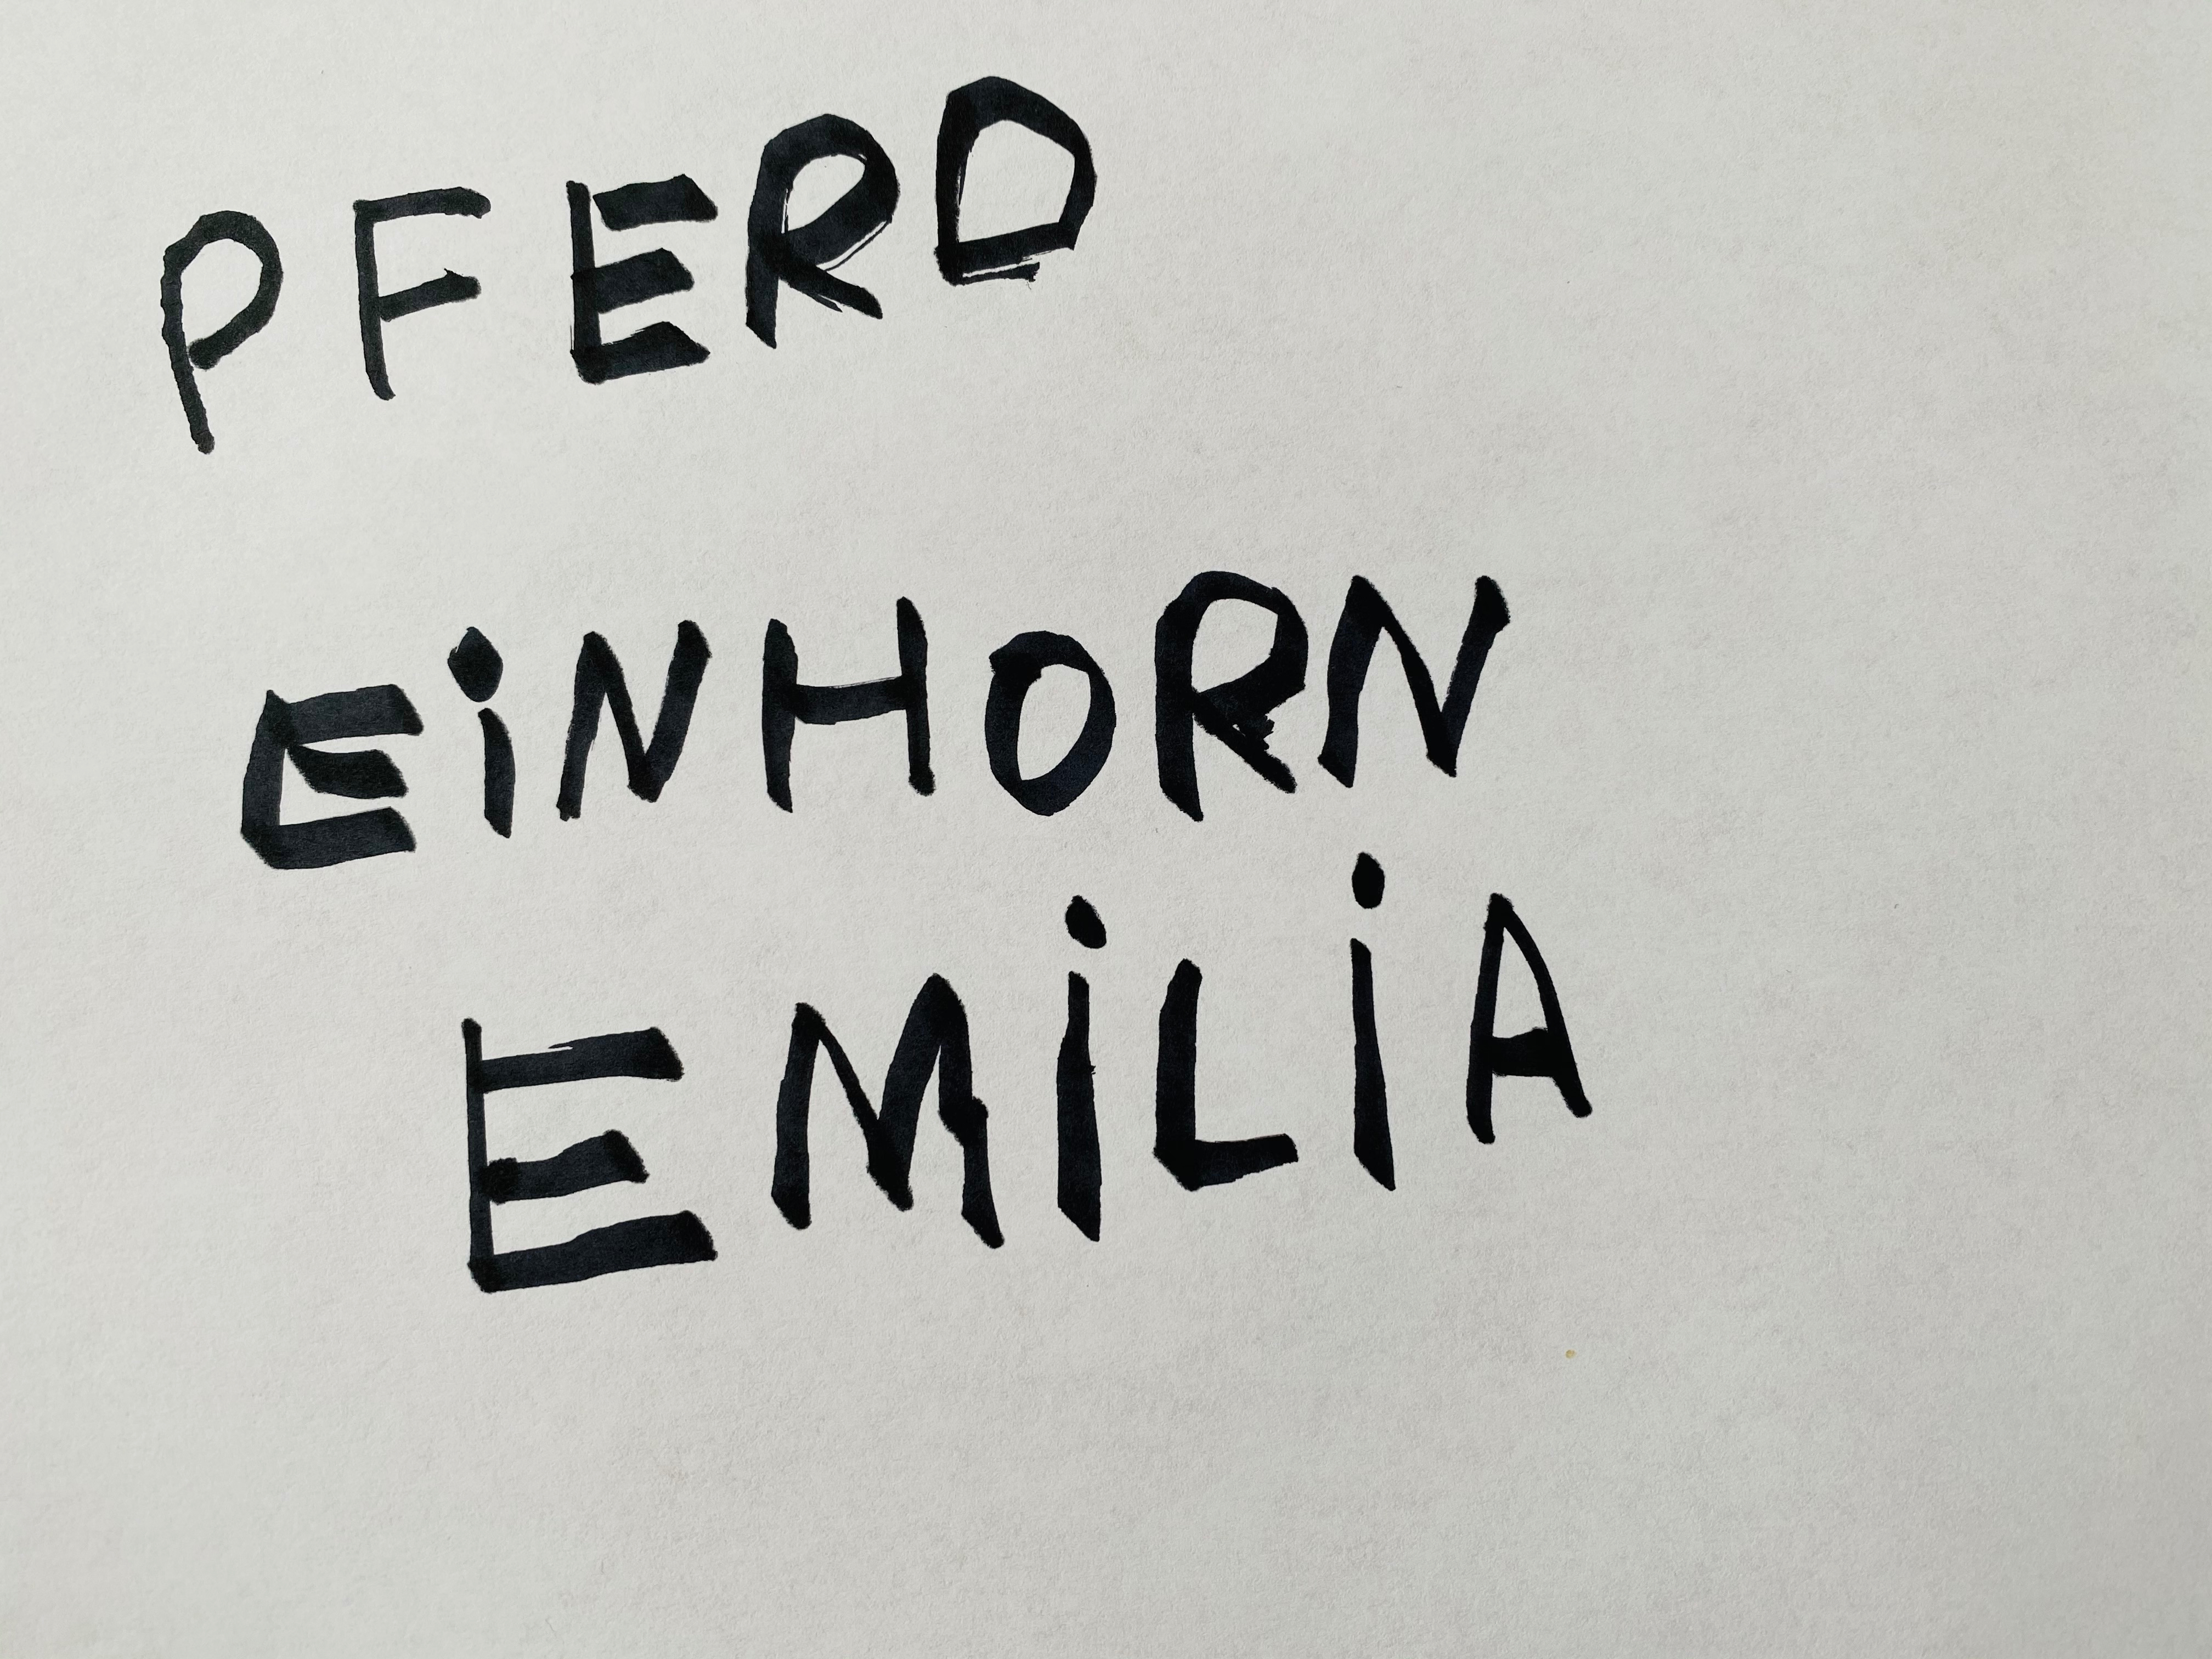 PFERD
EiNHORN
EMiLiA